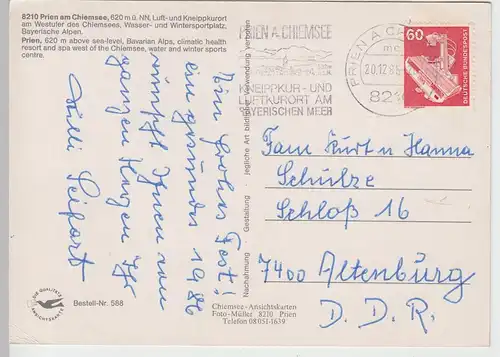 8210 Prien am Chiemsee, 620 m ü. NN, Luft- und Kneippkurort
am Westufer des Chiemsees, Wasser- und Wintersportplatz,
Bayerische Alpen.
Prien, 620 m above sea-level, Bavarian Alps, climatic health
resort and spa west of the Chiemsee, water and winter sports
centre.
Ein frohes Fest!
ein gesundes 1986
wünscht Ihnen von
ganzem Herzen Ihr
Willi Seifart
DIE QUALITÄTS
ANSICHTSKARTE
Bestell-Nr. 588
Chiemsee-Ansichtskarten
Foto-Müller 8210 Prien
Telefon 08051-1639
Nachahmung
Gestaltung
jegliche Art bildlicher Verwendung verboten
PRIEN A. CHIEMSEE
KNEIPPKUR- UND
LUFTKURORT AM
BAYERISCHEN MEER
PRIEN A CH
20.12.85
821
60
DEUTSCHE BUNDESPOST
Fam Kurt u Hanna
Schulze
Schloß 16
7400 Altenburg
D. D. R.